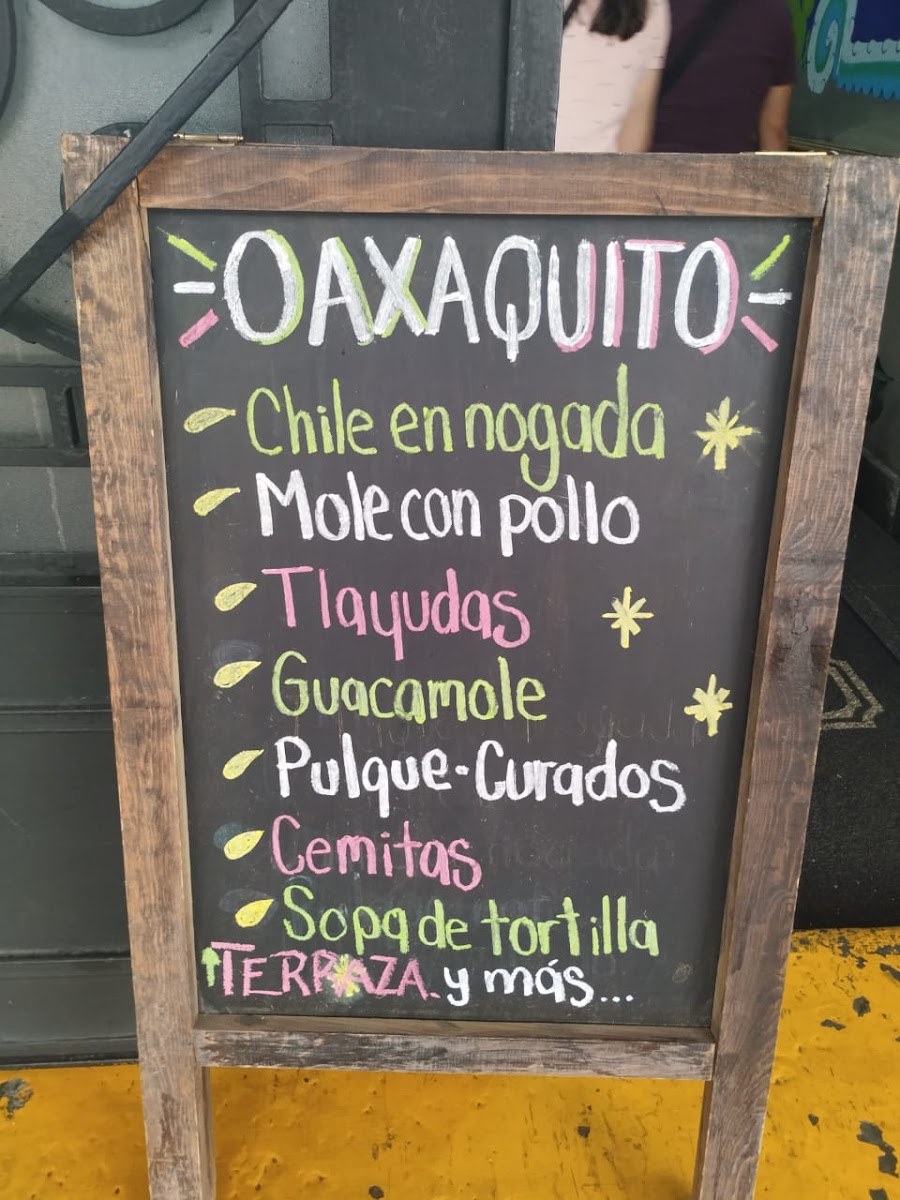 OAXAQUITO
Chile en nogada
Mole con pollo
Tlayudas
Guacamole
Pulque-Curados
Cemitas
Sopa de tortilla
TERRAZA. y más...